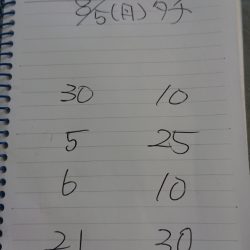 8/5(月)タチ
30 10
5 25
6 10
21 30